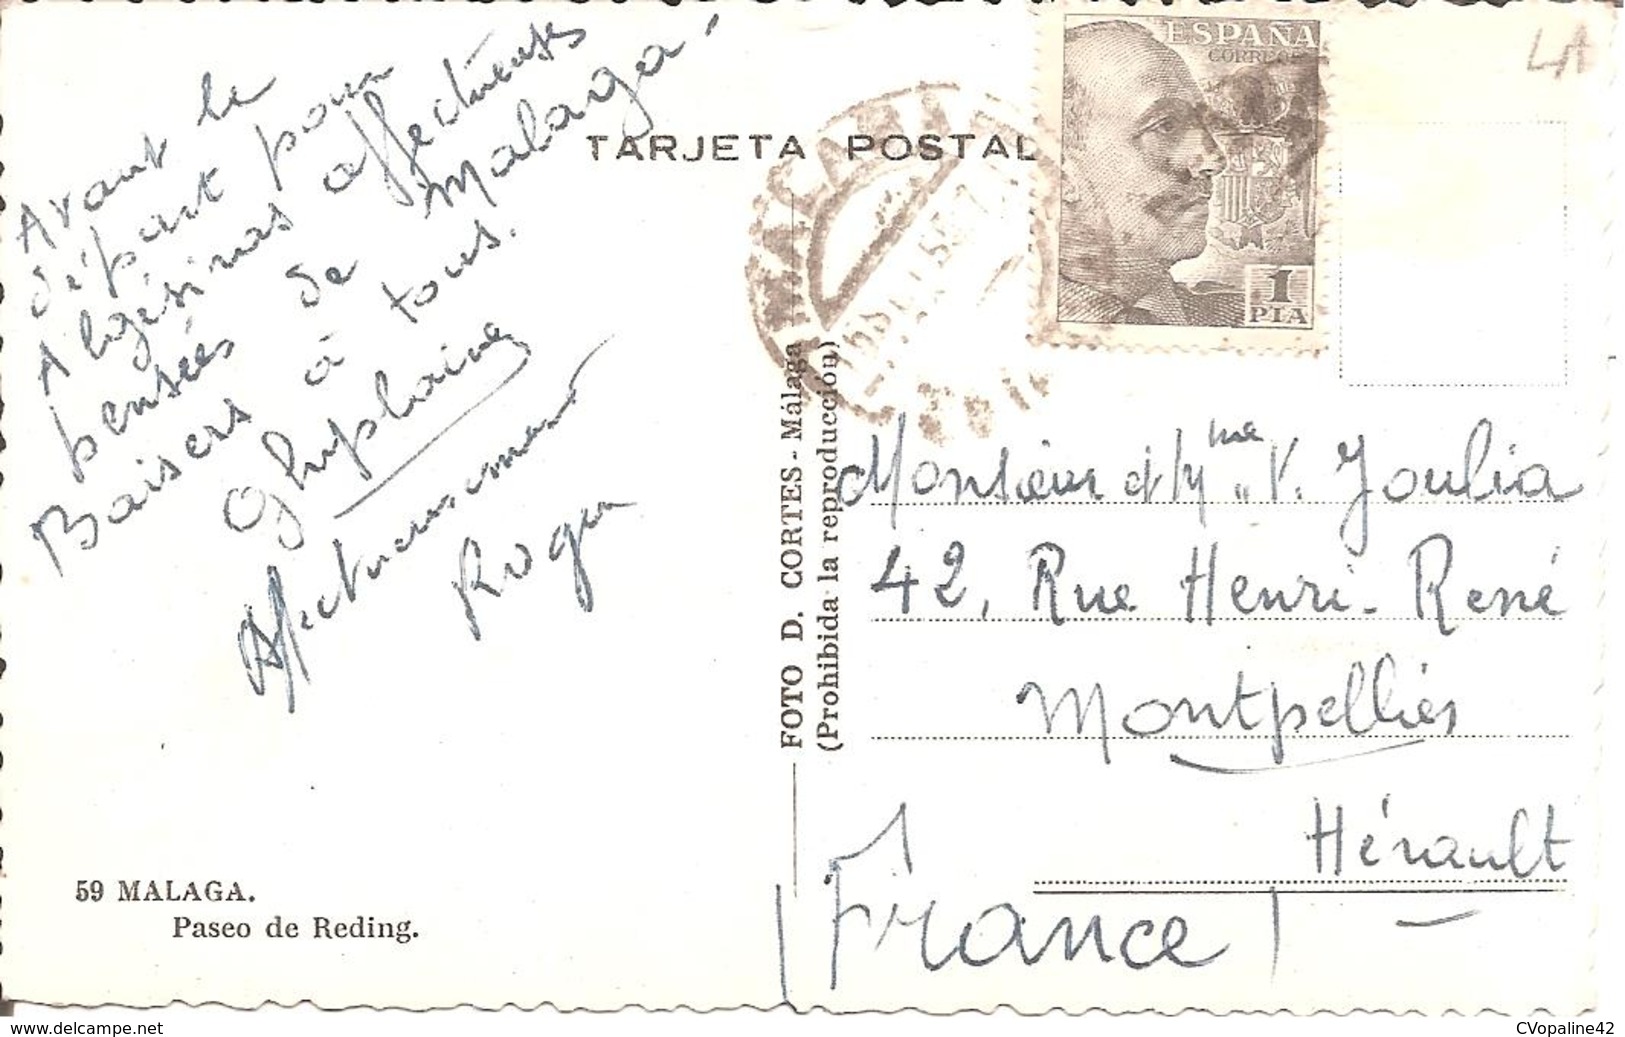 Avant le
départ pour
Algésiras affectueuses
pensées de Malaga!
Baisers à tous.
Ghyslaine
Affectueusement
Roger
59 MALAGA.
Paseo de Reding.
TARJETA POSTAL
FOTO D. CORTES - Málaga
(Prohibida la reproducción)
ESPAÑA
CORREOS
1
PTA
LA
Monsieur et Mme V. Joulia
42, Rue Henri-René
Montpellier
Hérault
(France)
CVopaline42
www.delcampe.net